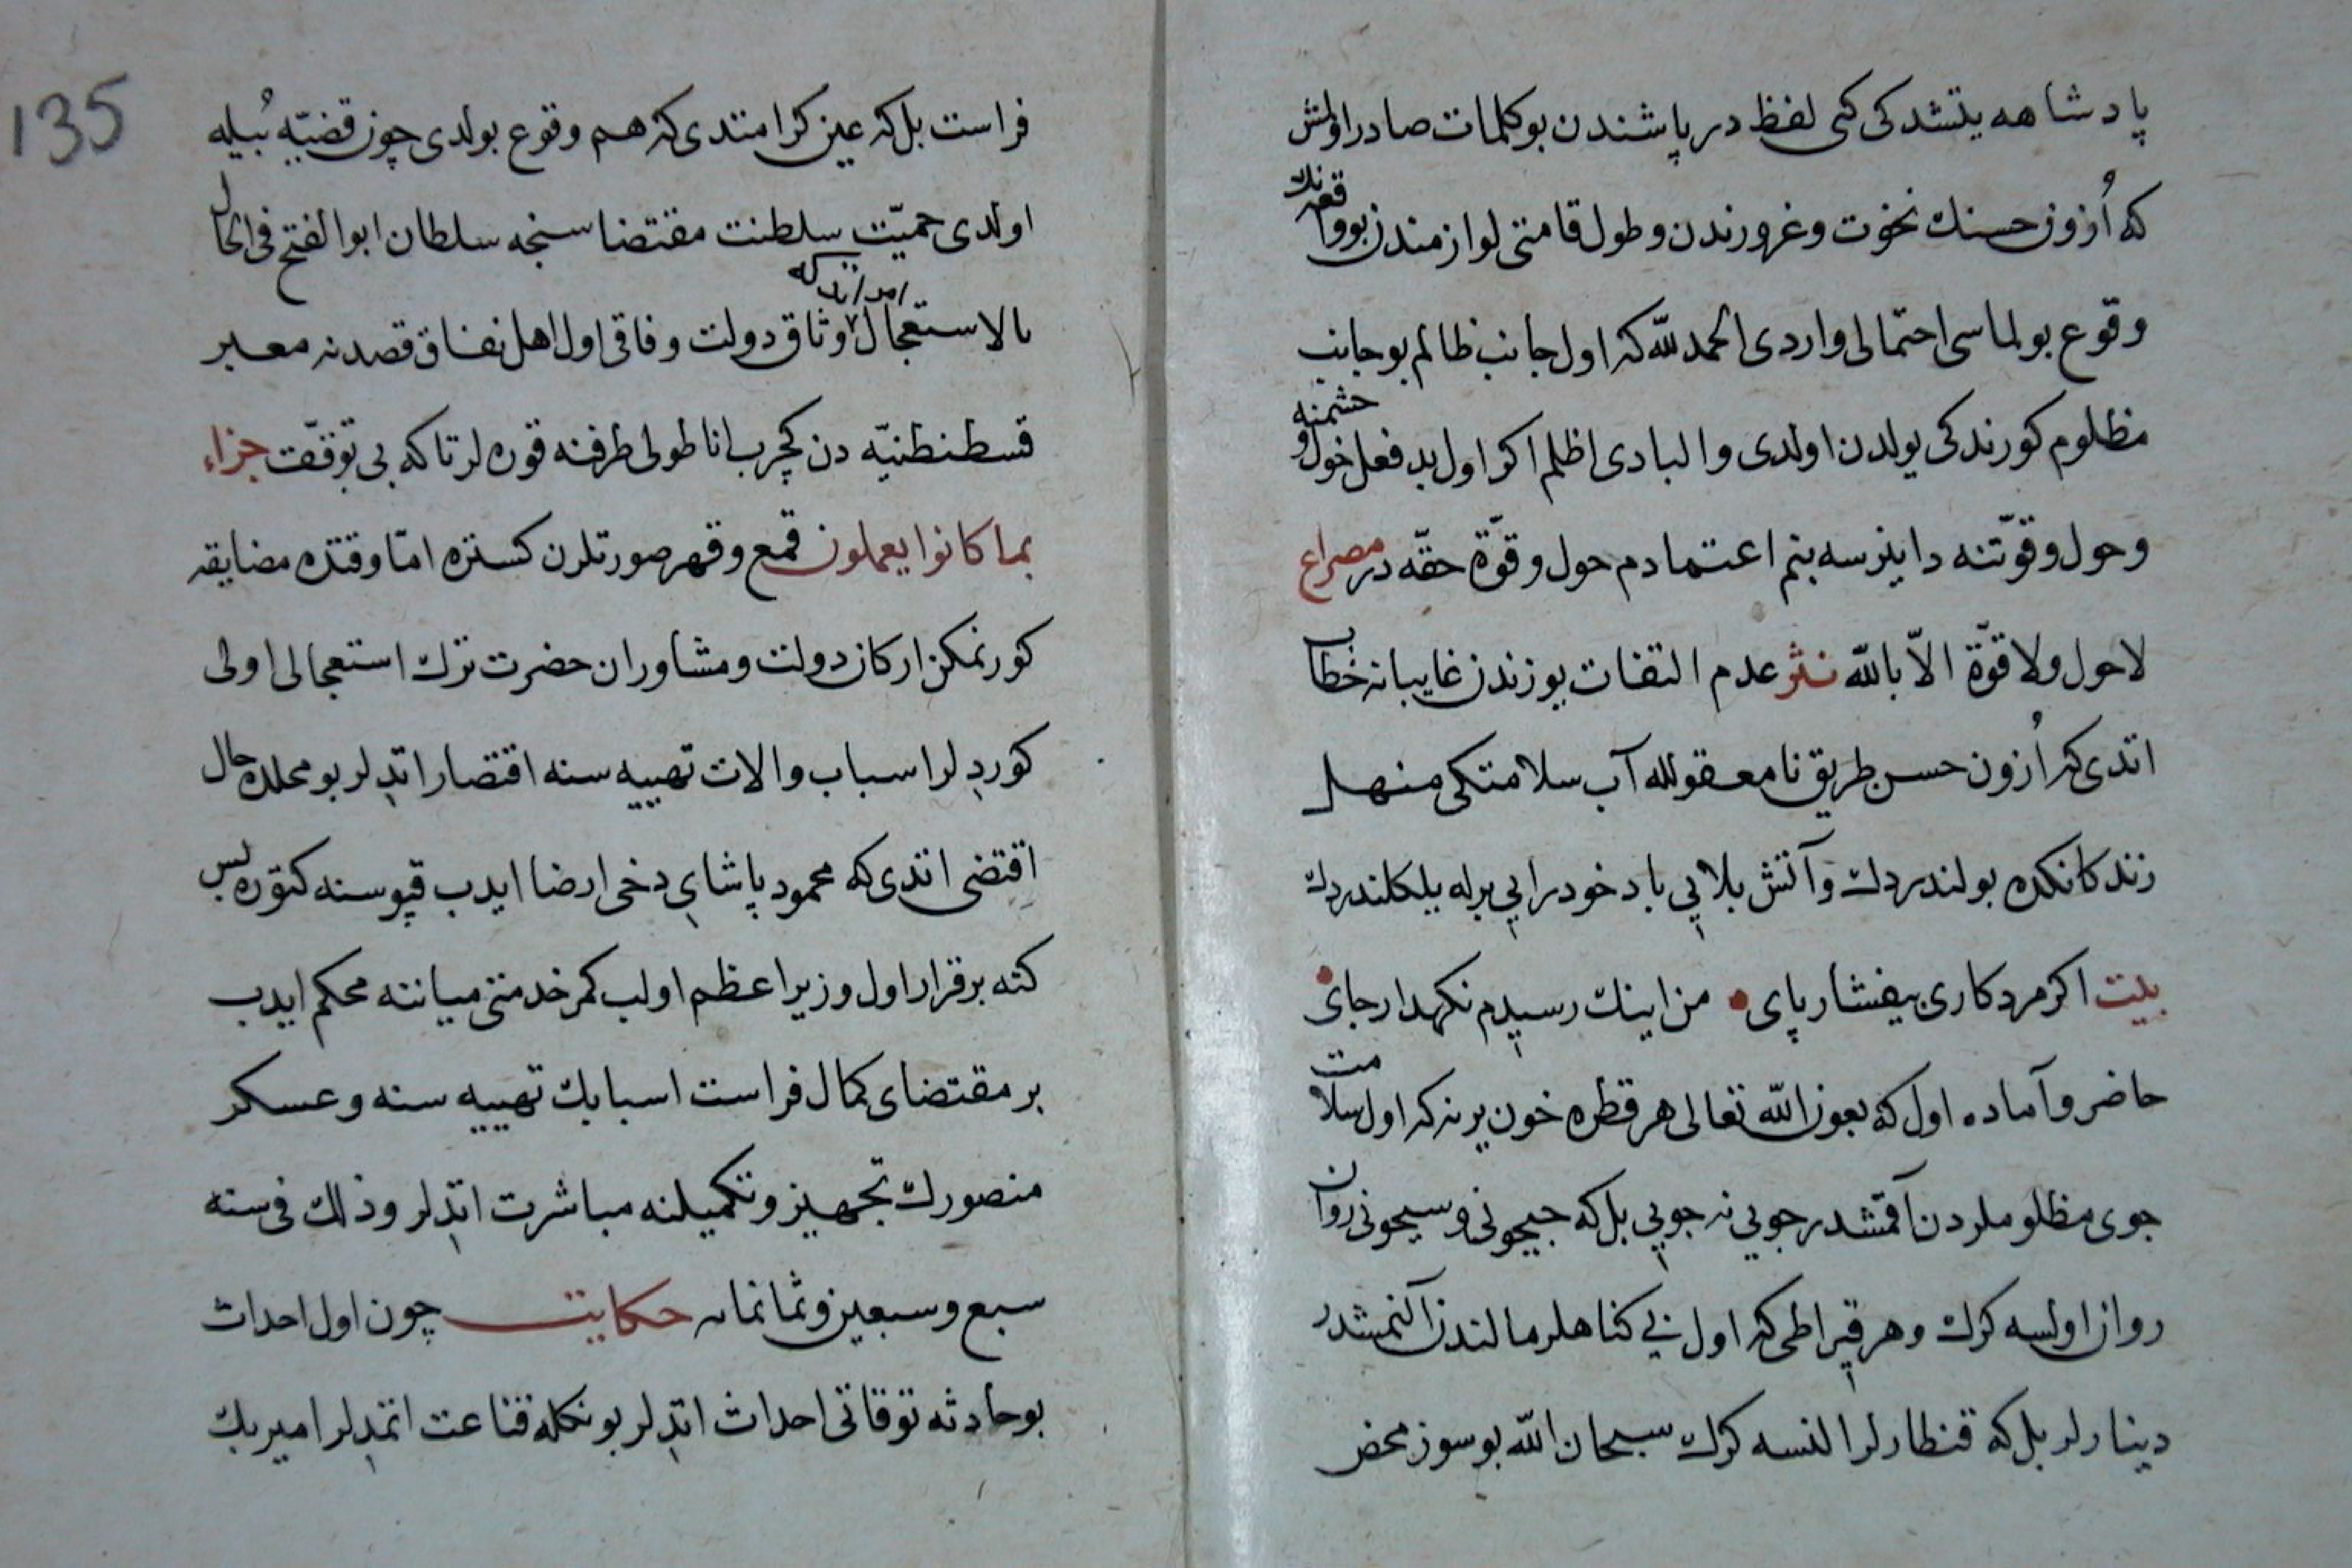 پادشاهه یتشدکی کبی لفظ درپاشندن بو کلمات صادر اولمش
که اُزون حسنك نخوت و غرورندن و طول قامتی لوازمندن بو واقعه‌نك
وقوع بولماسی احتمالی واردی الحمد لله که اول جانب ظالم بو جانب
مظلوم کورندکی یولدن اولدی والبادی اظلم اکر اول بد فعل خول و حشمنه
وحول و قوّتنه داینرسه بنم اعتمادم حول و قوّة حقّه در مصراع
لا حول ولا قوّة الاّ بالله نثر عدم التفات یوزندن غایبانه خطاب
اتدی که اُزون حسن طریق نامعقولله آب سلامتکی منهل
زندکانکده بولندردك و آتش بلایی باد خودرایی برله یلکلندردك
بیت اکر مرد کاری بیفشار پای من اینك رسیدم نکهدار جای
حاضر و آماده اول که بعون الله تعالی هر قطره خون یرنه که اول سلامت
جوی مظلوملردن آقمّشدر جویی نه جویی بل که جیحونی و سیحونی روان
روان اولسه کرك و هر قیراطی که اول بی کناهلر مالندن آلنمشدر
دینارلر بل که قنطارلر النسه کرك سبحان الله بو سوز محض
135
فراست بل که عین کرامتدی که هم وقوع بولدی چون قضیّه بُیله
اولدی حمیّت سلطنت مقتضاسنجه سلطان ابو الفتح فی الحال
بالاستعجال امر اتدی که وثاق دولت وفاقی اول اهل نفاق قصدنه معبر
قسطنطنیّه دن کچرب اناطولی طرفنه قوره لر تا که بی توقفّت جزاء
بما کانوا یعملون قمع و قهر صورتلرن کستره امّا وقتده مضایقه
کورنمکن ارکان دولت و مشاوران حضرت ترك استعجالی اولی
کوردلر اسباب و الات تهییه سنه اقتصار اتدلر بو محلده حال
اقتضی اتدی که محمود پاشای دخی ارضا ایدب قپوسنه کتوره لس
کته برقرار اول وزیر اعظم اولب کمر خدمتی میاننه محکم ایدب
بر مقتضای کمال فراست اسبابك تهییه سنه و عسکر
منصورك تجهیز و تکمیلنه مباشرت اتدلر و ذلك فی سنه
سبع و سبعین و ثمانمایه حکایت چون اول احداث
بو حادثه توقاتی احداث اتدلر بونکله قناعت اتمدلر امیر بك